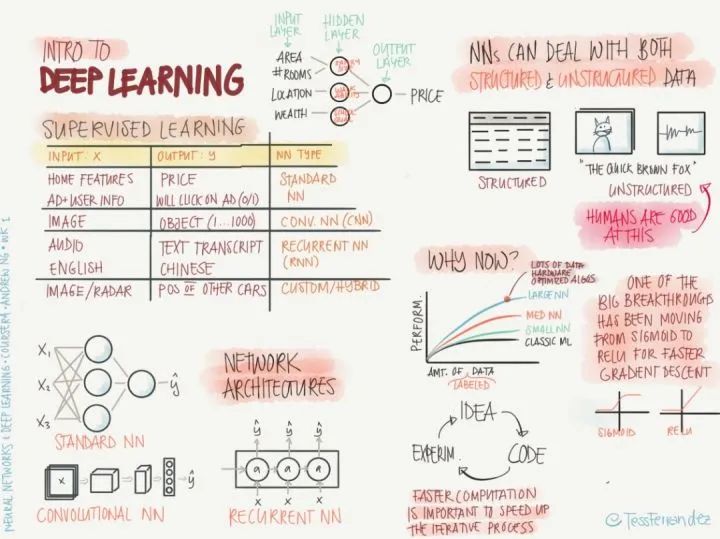 INTRO TO
DEEP LEARNING
INPUT LAYER
HIDDEN LAYER
OUTPUT LAYER
AREA
# ROOMS
LOCATION
WEALTH
PRICE
SUPERVISED LEARNING
INPUT: X OUTPUT: y NN TYPE
HOME FEATURES PRICE STANDARD
AD+USER INFO WILL CLICK ON AD (0/1) NN
IMAGE OBJECT (1...1000) CONV. NN (CNN)
AUDIO TEXT TRANSCRIPT RECURRENT NN
ENGLISH CHINESE (RNN)
IMAGE/RADAR POS OF OTHER CARS CUSTOM/HYBRID
NNs CAN DEAL WITH BOTH
STRUCTURED & UNSTRUCTURED DATA
STRUCTURED
"THE QUICK BROWN FOX"
UNSTRUCTURED
HUMANS ARE GOOD
AT THIS
WHY NOW?
LOTS OF DATA
HARDWARE
OPTIMIZED ALGOS
LARGE NN
MED NN
SMALL NN
CLASSIC ML
PERFORM.
AMT. OF DATA
LABELED
ONE OF THE
BIG BREAKTHROUGHS
HAS BEEN MOVING
FROM SIGMOID TO
RELU FOR FASTER
GRADIENT DESCENT
SIGMOID RELU
NETWORK
ARCHITECTURES
X1
X2
X3
ŷ
STANDARD NN
X
ŷ
CONVOLUTIONAL NN
ŷ ŷ ŷ
a a a
X X X
RECURRENT NN
IDEA
CODE
EXPERIM.
FASTER COMPUTATION
IS IMPORTANT TO SPEED UP
THE ITERATIVE PROCESS
NEURAL NETWORKS & DEEP LEARNING • COURSERA • ANDREW NG • WK 1
@TessFerrandez